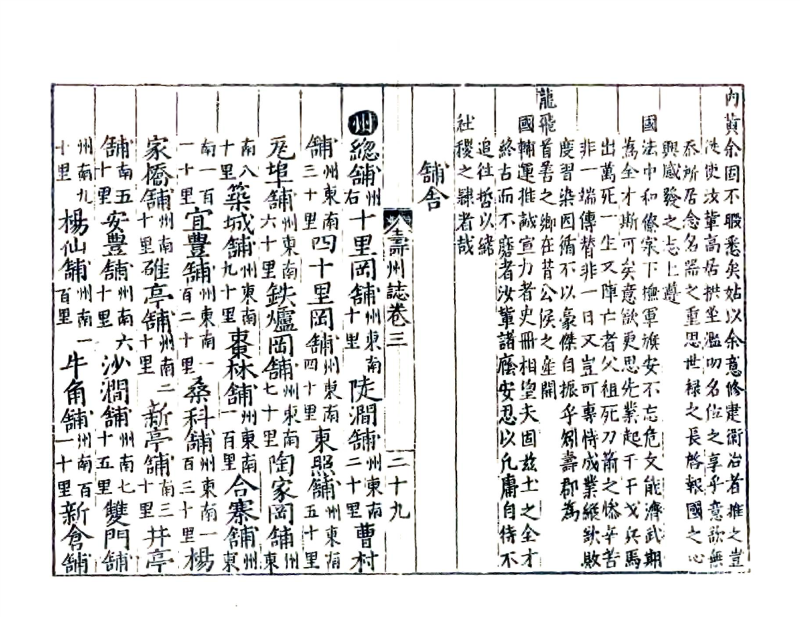 內黃余固不暇悉矣姑以余意修建衛治者推之豈
徒使汝輩高居拱坐濫叨名位之享乎意欲無
忝所居念名器之重思世祿之長啓報國之心
興感發之志上遵
國法中和條宗下撫軍旅安不忘危文能濟武期
為全才斯可矣意欲更思先業起于干戈兵馬
出萬死一生又陣亡者父祖死刀箭之慘辛苦
非一端傳替非一日又豈可專恃成業縱欲敗
度習染因循不以豪傑自振乎矧壽郡為
龍飛首善之鄉在昔公侯之產開
國輔運推誠宣力者史冊相望夫固茲土之全才
終古而不磨者汝輩諸廕安忍以凡庸自待不
追往哲以緒
社稷之隸者哉
舖舍
壽州誌卷三 二十九
州總舖州右十里岡舖州東南十里陡澗舖州東南二十里曹村
舖州東南三十里四十里岡舖州東南四十里東照舖州東南五十里
瓦埠舖州東南六十里鉄爐岡舖州東南七十里陶家岡舖州東
南八十里築城舖州東南九十里棗林舖州東南一百里合寨舖州東
南一百一十里宜豐舖州東南一百二十里桑科舖州東南一百三十里楊
家橋舖州南十里碓亭舖州南二十里新亭舖州南三十里井亭
舖南五十里安豐舖州南六十里沙澗舖州南七十五里雙門舖
州南九十里楊仙舖州南一百里牛角舖州南百一十里新倉舖